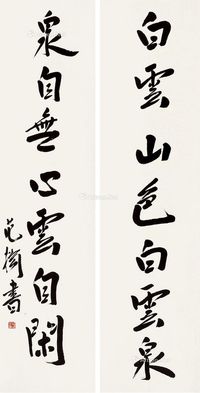 白雲山色白雲泉
泉自無心雲自閑
范衡書